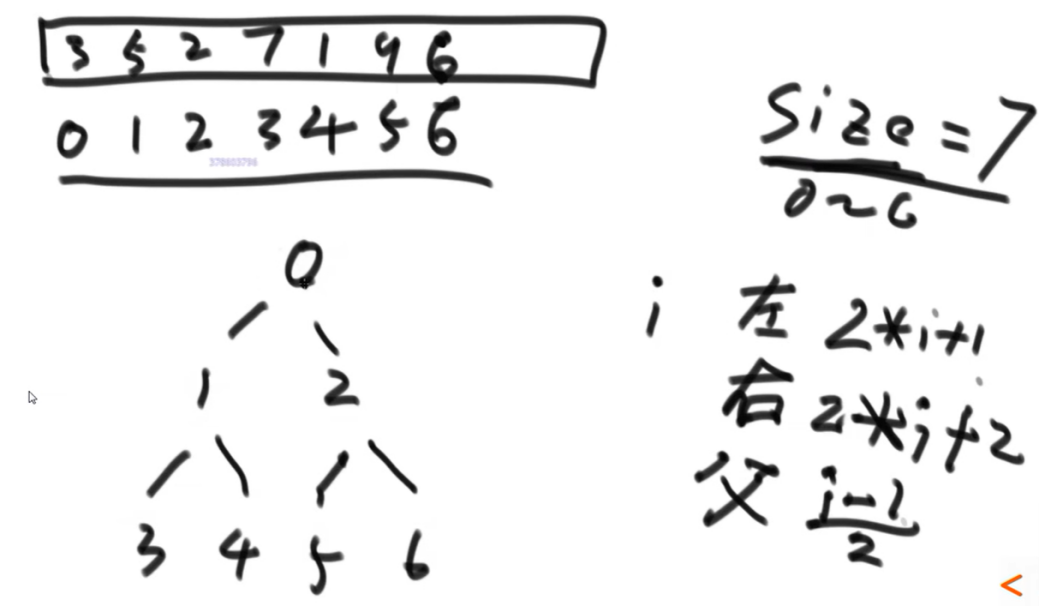 3 5 2 7 1 9 6
0 1 2 3 4 5 6
378603796
size=7
0~6
0
1 2
3 4 5 6
i 左 2*i+1
右 2*i+2
父 i-1
2